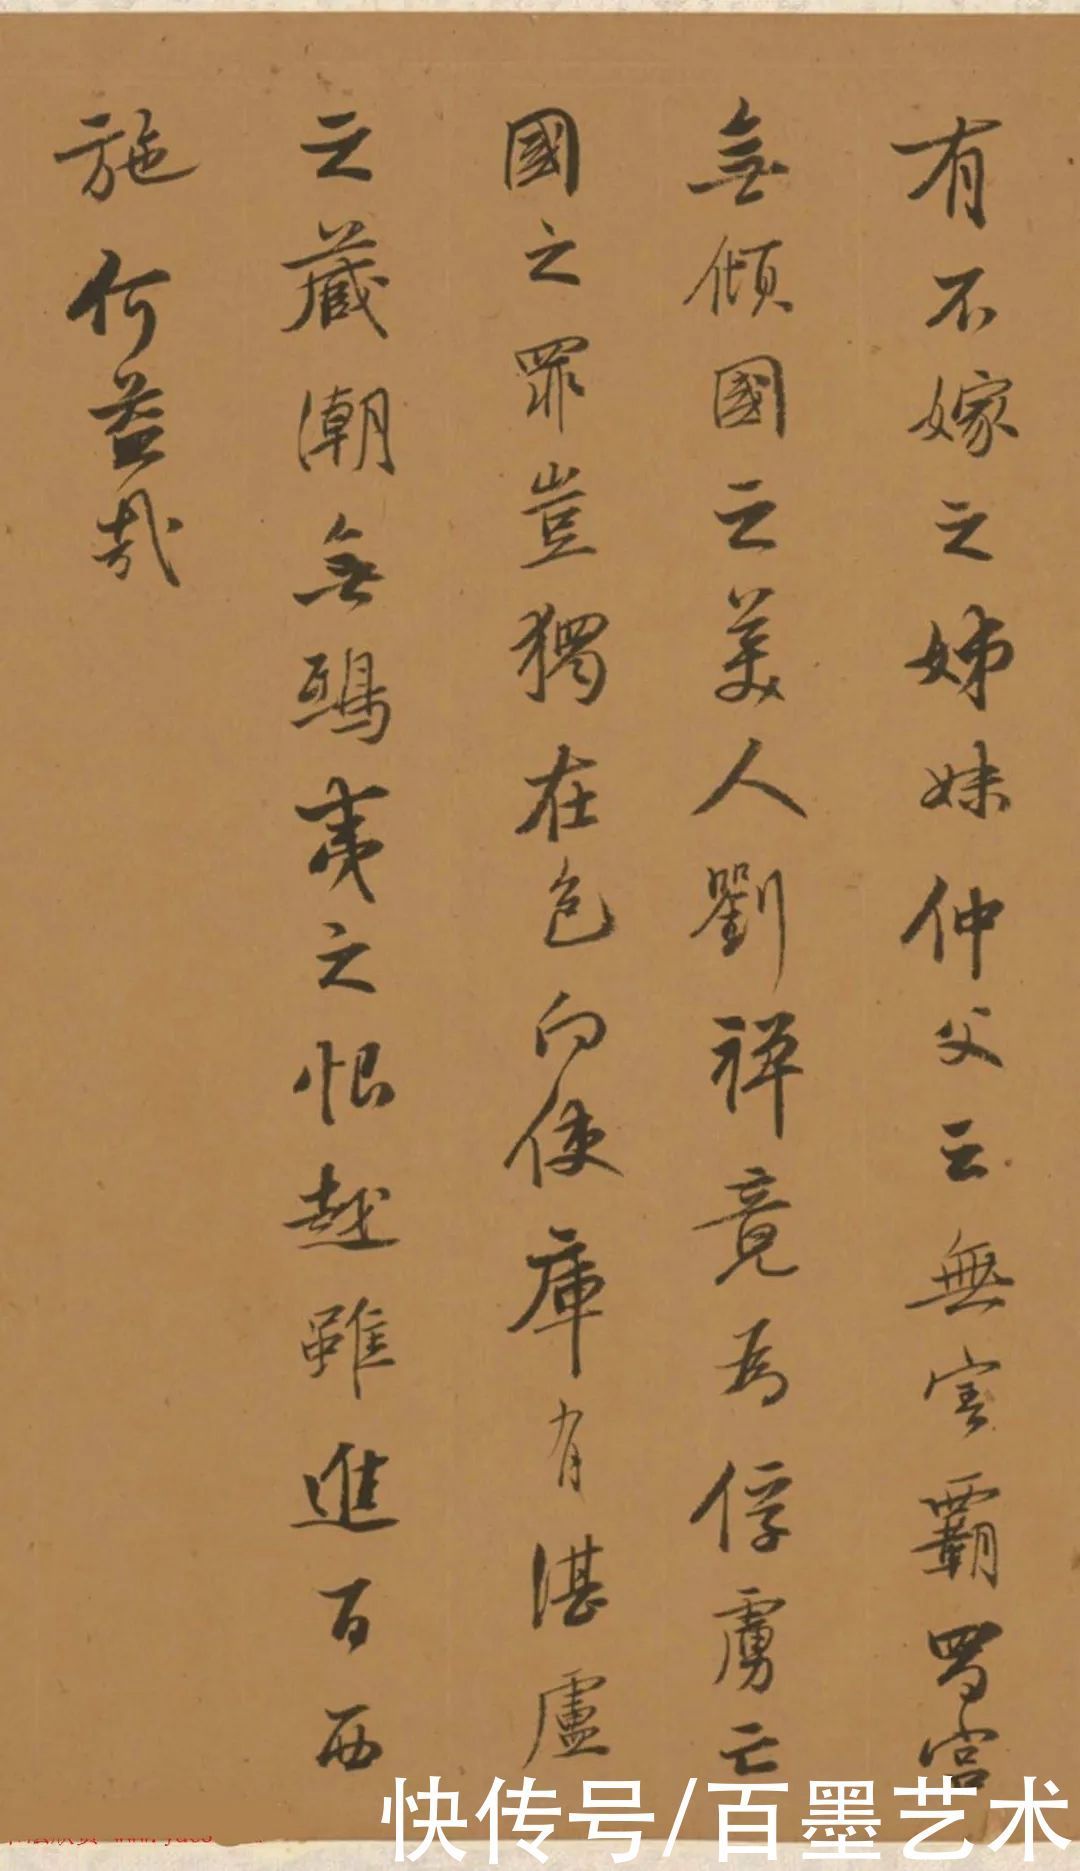 有不嫁之姊妹仲父云無害霸蜀宮
無傾國之美人劉禪竟為俘虜亡
國之罪豈獨在色向使庫有湛盧
之藏潮無鴟夷之恨越雖進百西
施何益哉
快传号/百墨艺术